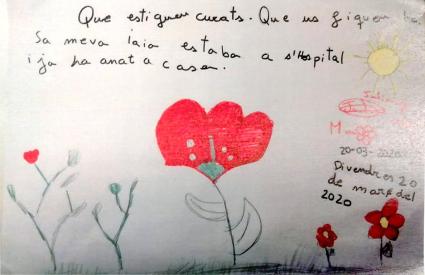 Que estiguem curats. Que us
Sa meva iaia estaba a s'Hospital
i ja ha anat a casa.
20-03-2020
Divendres 20
de març del
2020